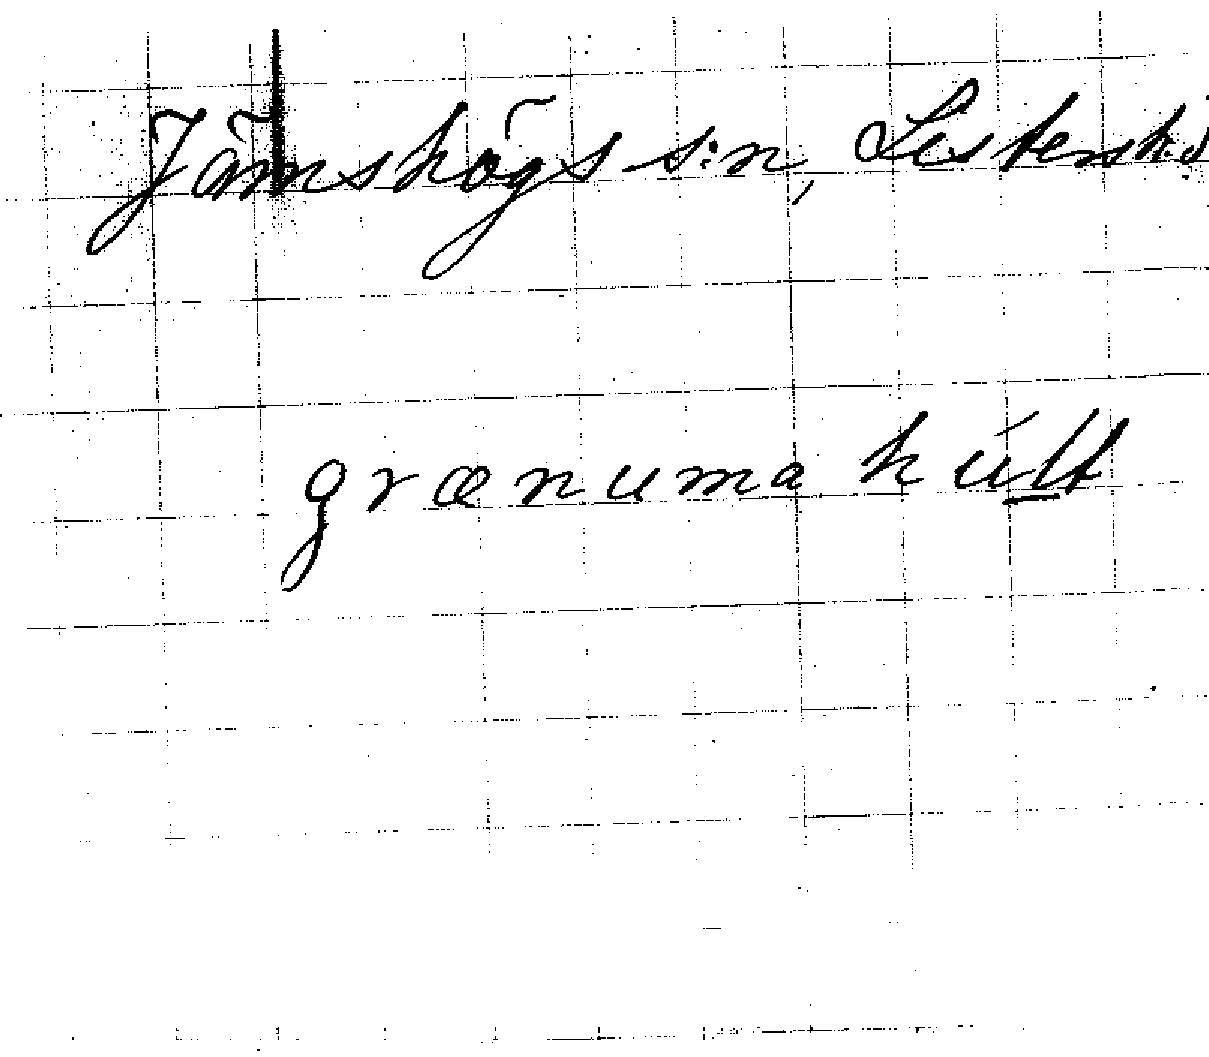 Jämshögs s:n, Listers h.d
grænuma húlt